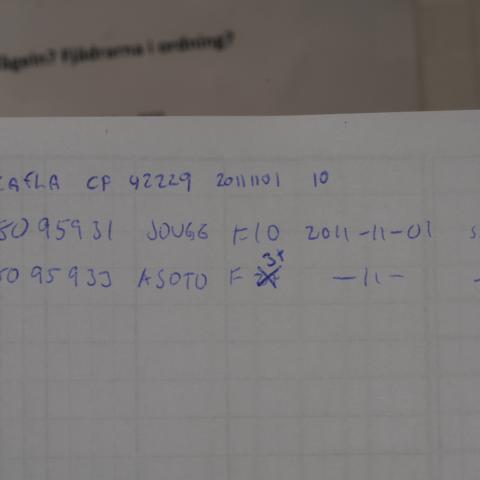 fågeln? Fjädrarna i ordning?
CAFLA CP 42229 20111101 10
5095931 JOUGG F10 2011-11-01 S
5095933 ASOTO F 3+ —11—